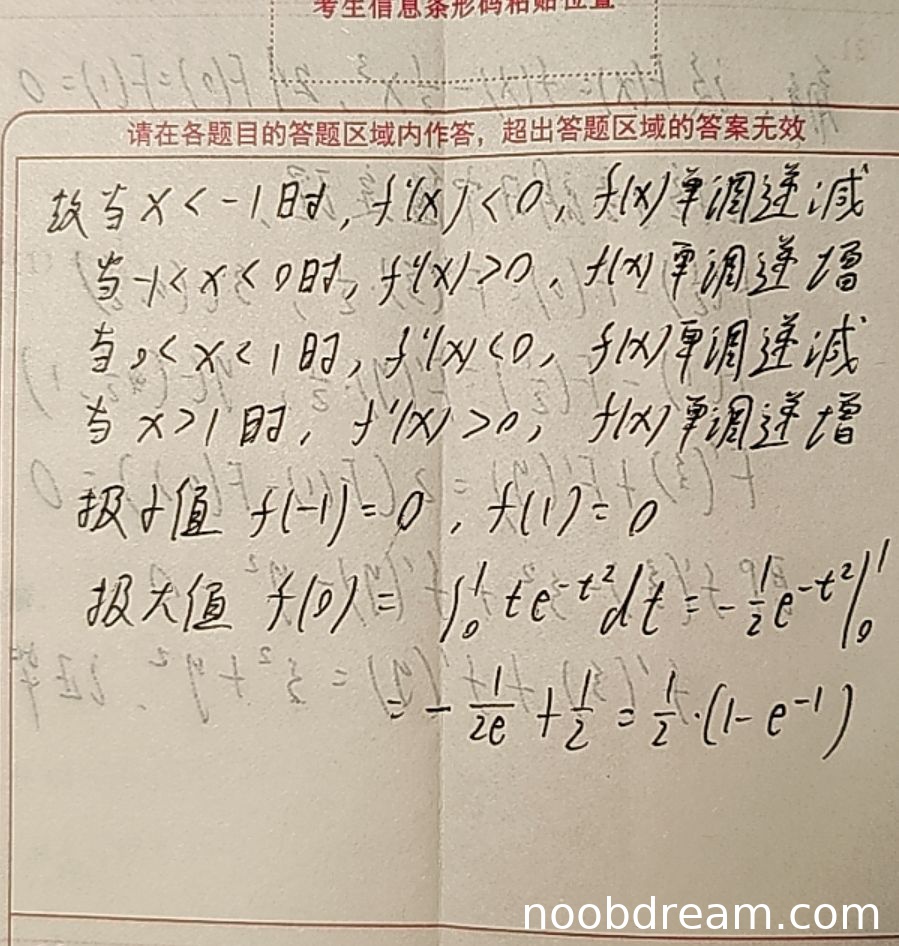 考生信息条形码粘贴位置
请在各题目的答题区域内作答，超出答题区域的答案无效
故当 x < -1 时, f'(x) < 0, f(x) 单调递减
当 -1 < x < 0 时, f'(x) > 0, f(x) 单调递增
当 0 < x < 1 时, f'(x) < 0, f(x) 单调递减
当 x > 1 时, f'(x) > 0, f(x) 单调递增
极小值 f(-1) = 0, f(1) = 0
极大值 f(0) = ∫₀¹ te^{-t²}dt = -\frac{1}{2}e^{-t²}|₀¹
= -\frac{1}{2e} + \frac{1}{2} = \frac{1}{2}·(1 - e^{-1})
noobdream.com